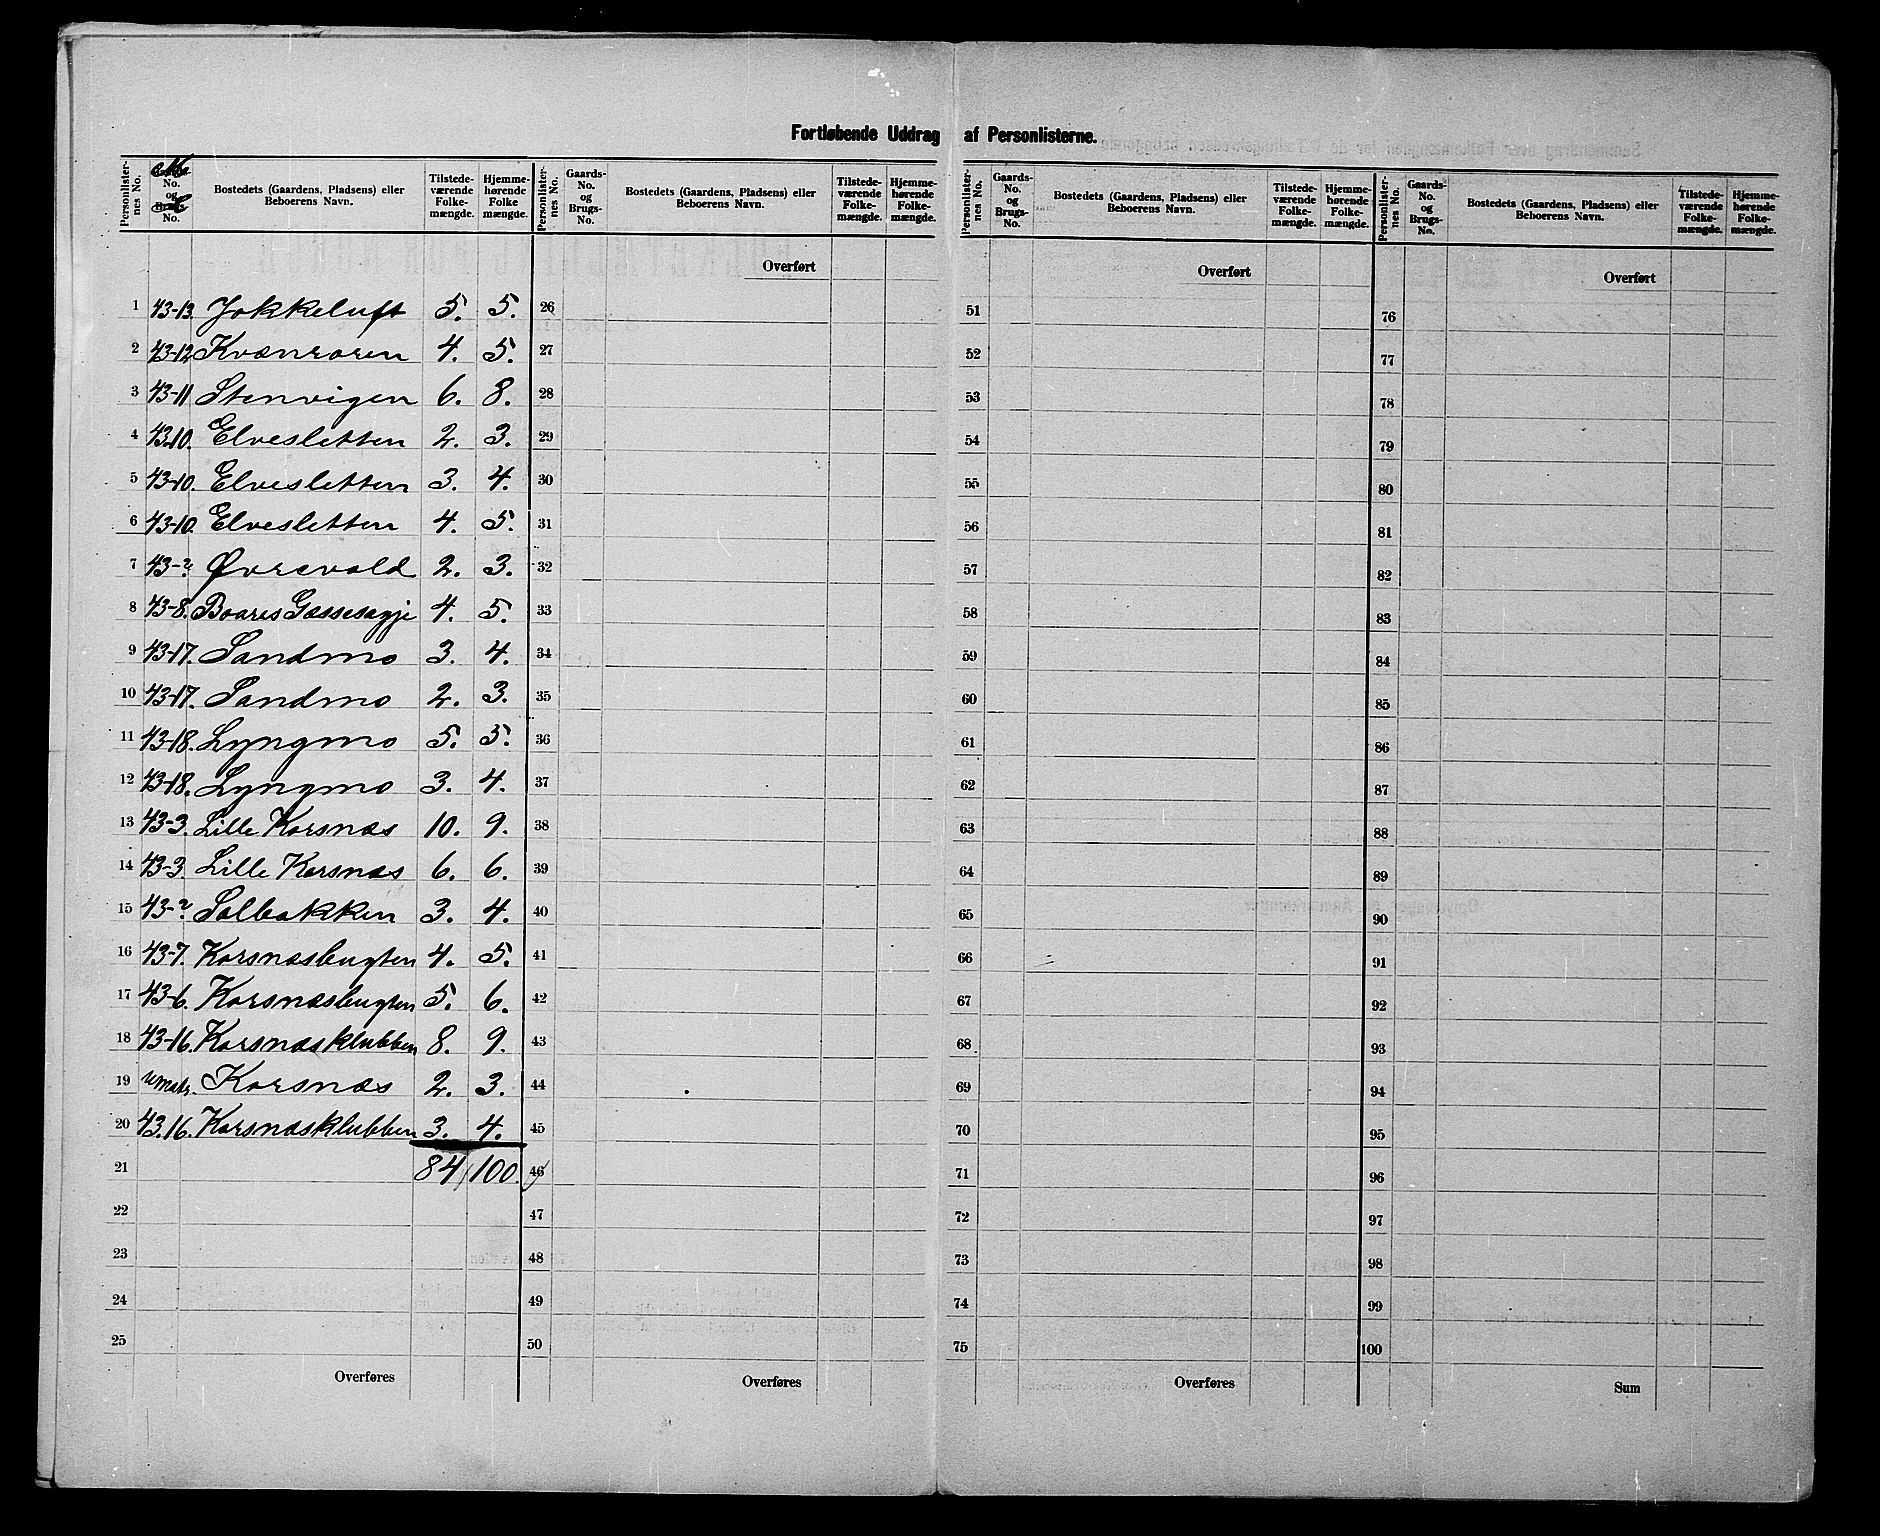 Fortløbende Uddrag af Personlisterne.
Personlisternes No. | M. No. og L No. | Bostedets (Gaardens, Pladsens) eller Beboerens Navn. | Tilstedeværende Folkemængde. | Hjemmehørende Folkemængde.
Personlisternes No. | Gaards-No. og Brugs-No. | Bostedets (Gaardens, Pladsens) eller Beboerens Navn. | Tilstedeværende Folkemængde. | Hjemmehørende Folkemængde.
Personlisternes No. | Gaards-No. og Brugs-No. | Bostedets (Gaardens, Pladsens) eller Beboerens Navn. | Tilstedeværende Folkemængde. | Hjemmehørende Folkemængde.
Personlisternes No. | Gaards-No. og Brugs-No. | Bostedets (Gaardens, Pladsens) eller Beboerens Navn. | Tilstedeværende Folkemængde. | Hjemmehørende Folkemængde.
Overført Overført Overført
1 43-13. Jokkeluft 5. 5. 26 51 76
2 43-12 Kvænroren 4. 5. 27 52 77
3 43-11 Stenvigen 6. 8. 28 53 78
4 43.10. Elvesletten 2. 3. 29 54 79
5 43-10. Elvesletten 3. 4. 30 55 80
6 43-10. Elvesletten 4. 5. 31 56 81
7 43-? Øvrevold 2. 3. 32 57 82
8 43-8. Boares Gassesagje 4. 5. 33 58 83
9 43-17. Sandmo 3. 4. 34 59 84
10 43-17. Sandmo 2. 3. 35 60 85
11 43-18. Lyngmo 5. 5. 36 61 86
12 43-18. Lyngmo 3. 4. 37 62 87
13 43-3. Lille Korsnæs 10. 9. 38 63 88
14 43-3. Lille Korsnæs 6. 6. 39 64 89
15 43-? Solbakken 3. 4. 40 65 90
16 43-7. Korsnæsbugten 4. 5. 41 66 91
17 43-6. Korsnæsbugten 5. 6. 42 67 92
18 43-16. Korsnæsklubben 8. 9. 43 68 93
19 umatr. Korsnæs 2. 3. 44 69 94
20 43.16. Korsnæsklubben 3. 4. 45 70 95
21 84 100. 46 71 96
22 47 72 97
23 48 73 98
24 49 74 99
25 50 75 100
Overføres Overføres Overføres Sum